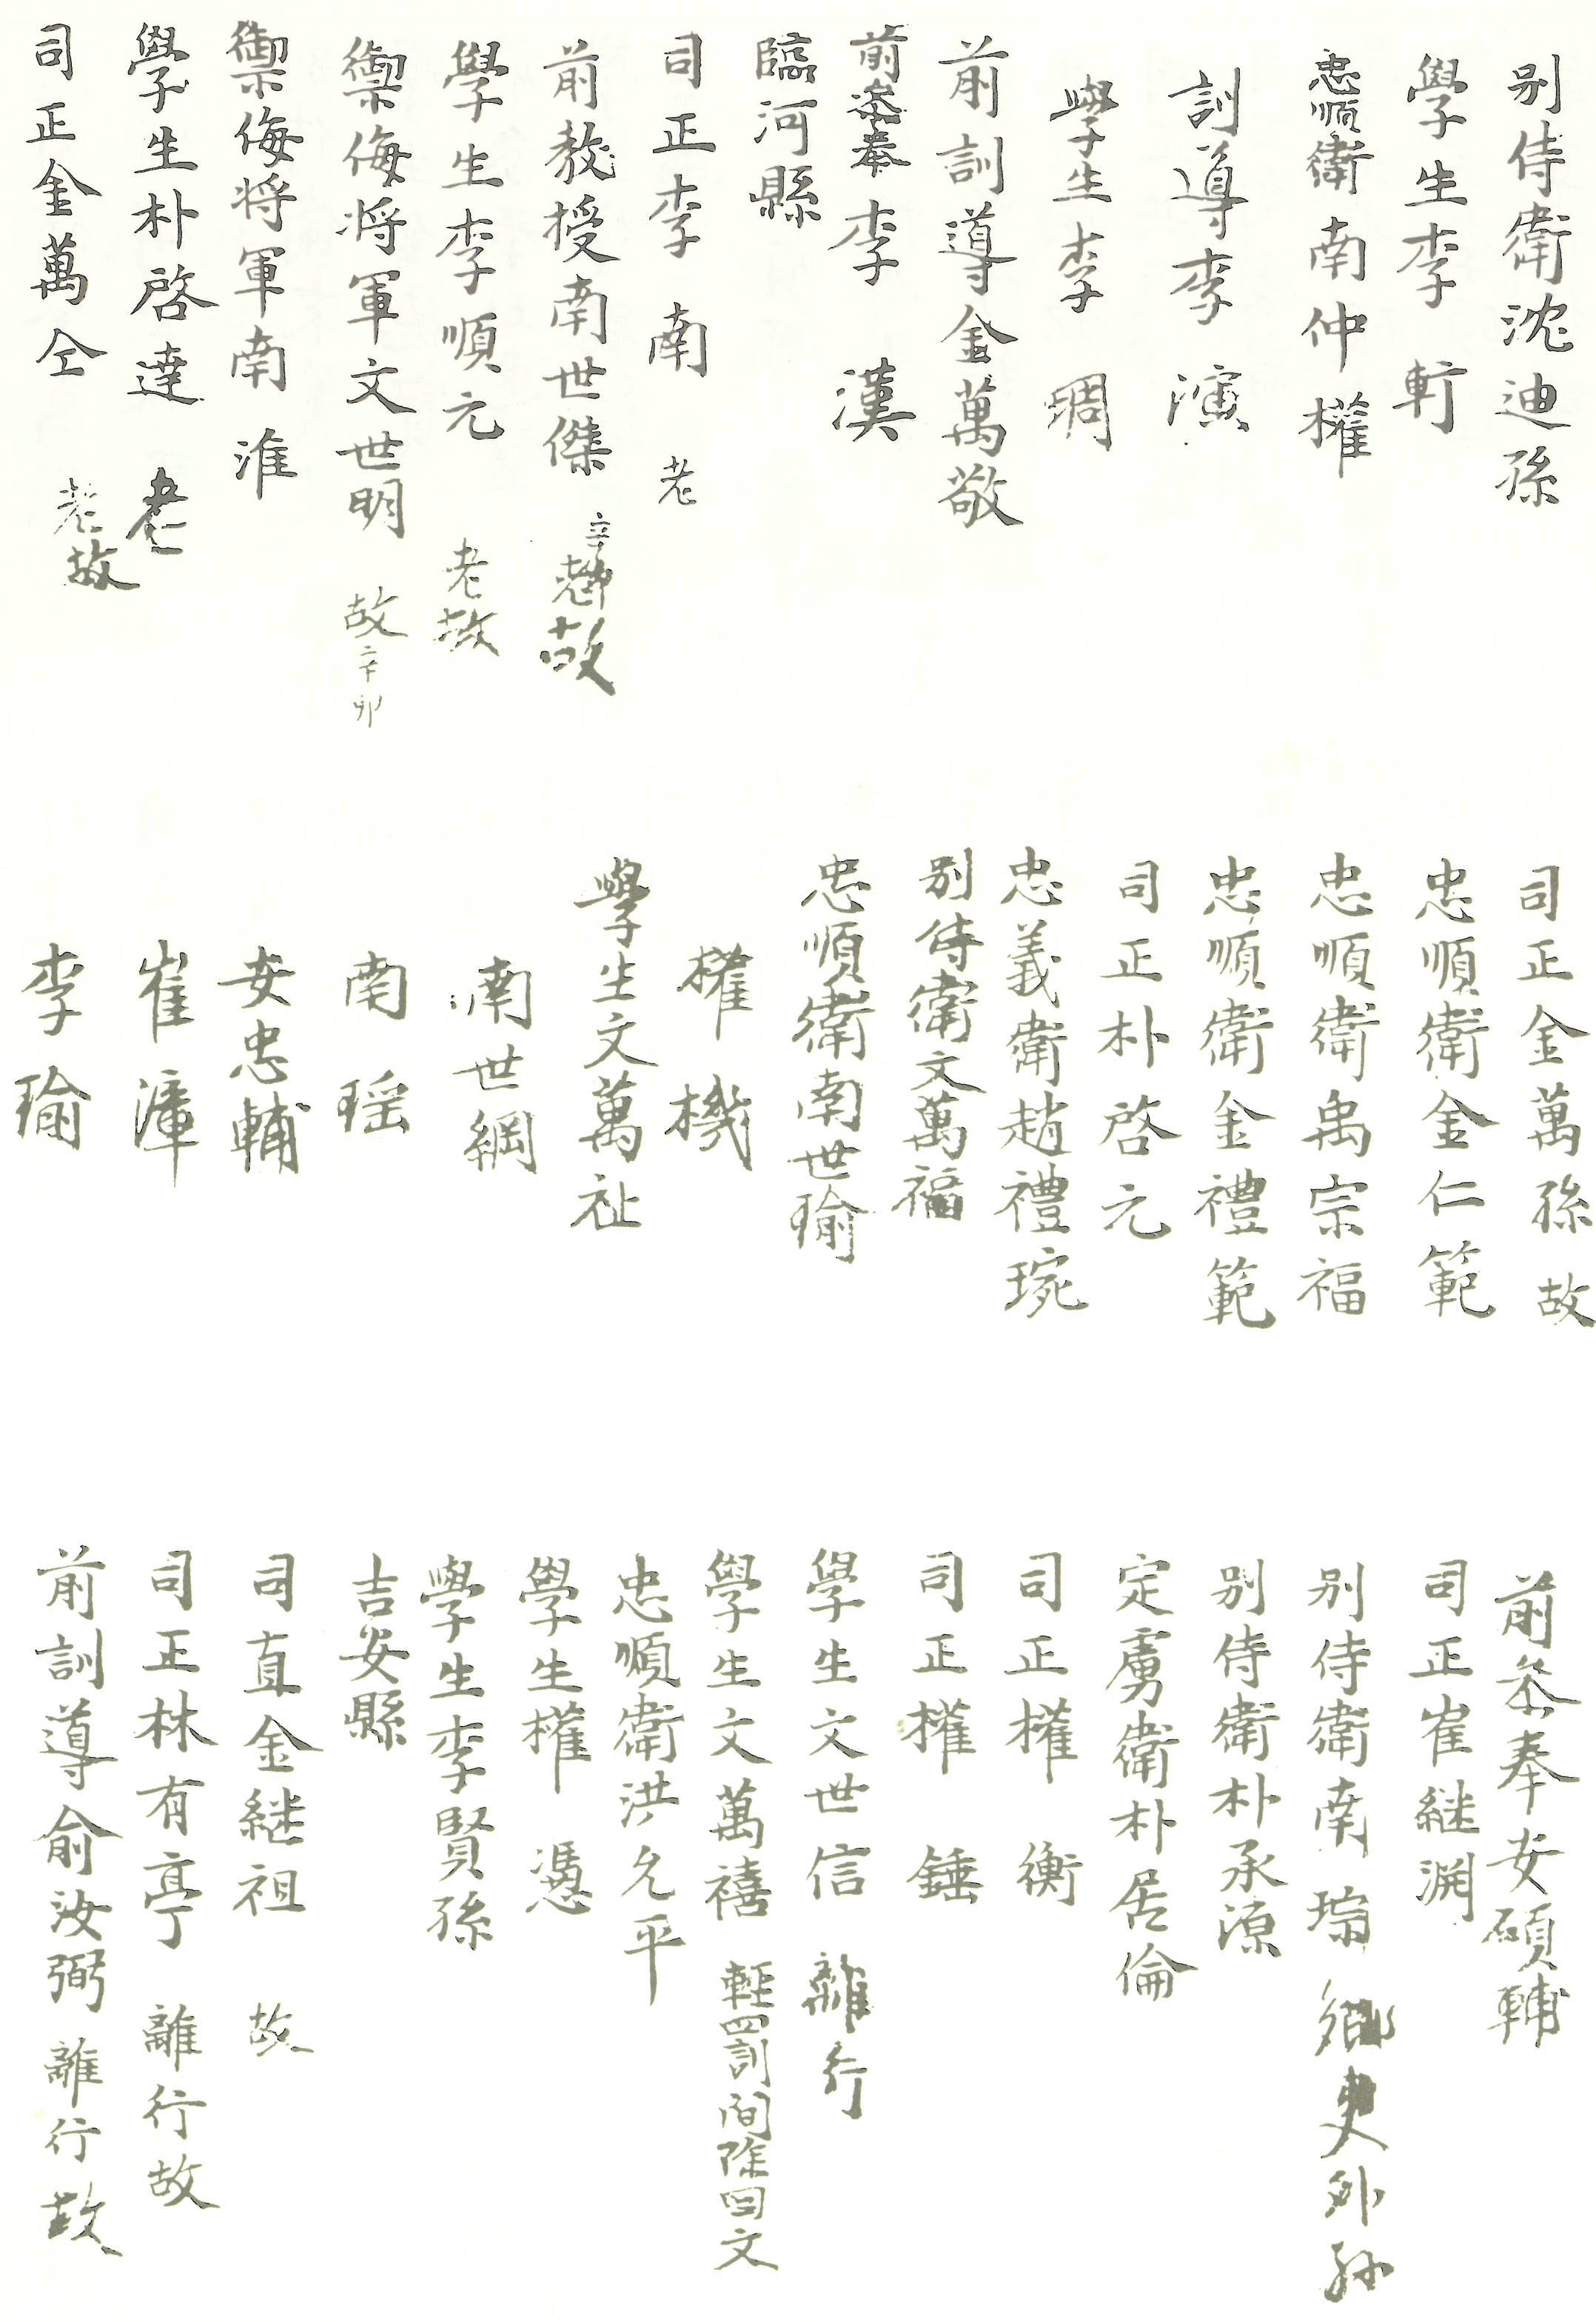 別侍衛沈迪孫
學生李軒
忠順衛南仲權
訓導李演
學生李琱
前訓導金萬敬
前叅奉李漢
臨河縣
司正李南 老
前教授南世傑 辛卯 老故
學生李順元 老故
禦侮將軍文世明 故辛卯
禦侮將軍南淮
學生朴啓達 老
司正金萬仝 老故
司正金萬孫 故
忠順衛金仁範
忠順衛禹宗福
忠順衛金禮範
司正朴啓元
忠義衛趙禮琬
別侍衛文萬福
忠順衛南世瑜
權機
學生文萬祉
南世綱
南瑶
安忠輔
崔漳
李瑜
前叅奉安碩輔
司正崔継渊
別侍衛南琮 鄉吏外孫
別侍衛朴承源
定虜衛朴居倫
司正權衡
司正權錘
學生文世信 離行
學生文萬禧 輕罰間除回文
忠順衛洪允平
學生權憑
學生李賢孫
吉安縣
司直金継祖 故
司正林有亭 離行故
前訓導俞汝弼 離行故